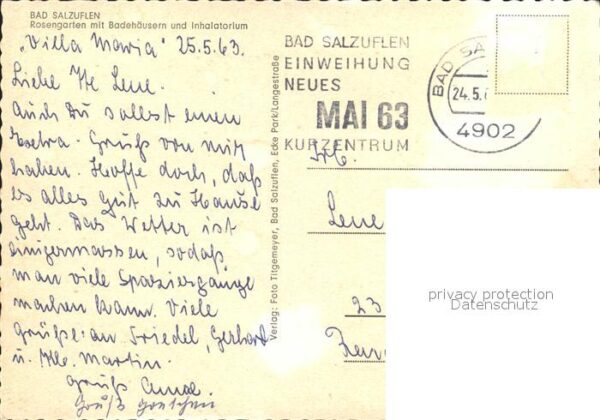 BAD SALZUFLEN
Rosengarten mit Badehäusern und Inhalatorium
"Villa Maria" 25.5.63.
Liebe Lene.
Auch Du sollst einen
Extra-Gruß von mir
haben. Hoffe doch, daß
es alles gut zu Hause
geht. Das Wetter ist
einigermassen, sodaß
man viele Spaziergänge
machen kann. Viele
Grüße an Friedel, Gerhard
u. Martin.
Gruß
Gruß
Verlag: Foto Titgemeyer, Bad Salzuflen, Ecke Park/Langestraße
BAD SALZUFLEN
EINWEIHUNG
NEUES
MAI 63
KURZENTRUM
BAD SA
24.5.6
4902
Lene
23
privacy protection
Datenschutz